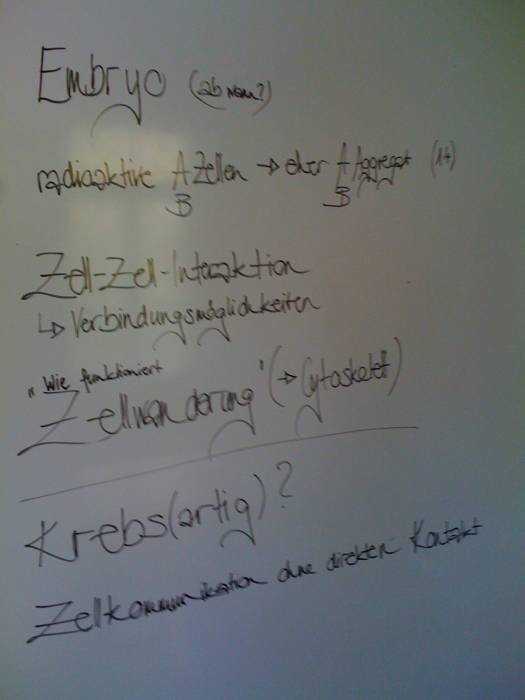 Embryo (ab wann?)
radioaktive A Zellen → eher A Aggregat (1+)
B B
Zell-Zell-Interaktion
↳ Verbindungsmöglichkeiten
"Wie funktioniert
Zellwanderung" (→ Cytoskelett)
Krebs(artig)?
Zellkommunikation ohne direkten Kontakt